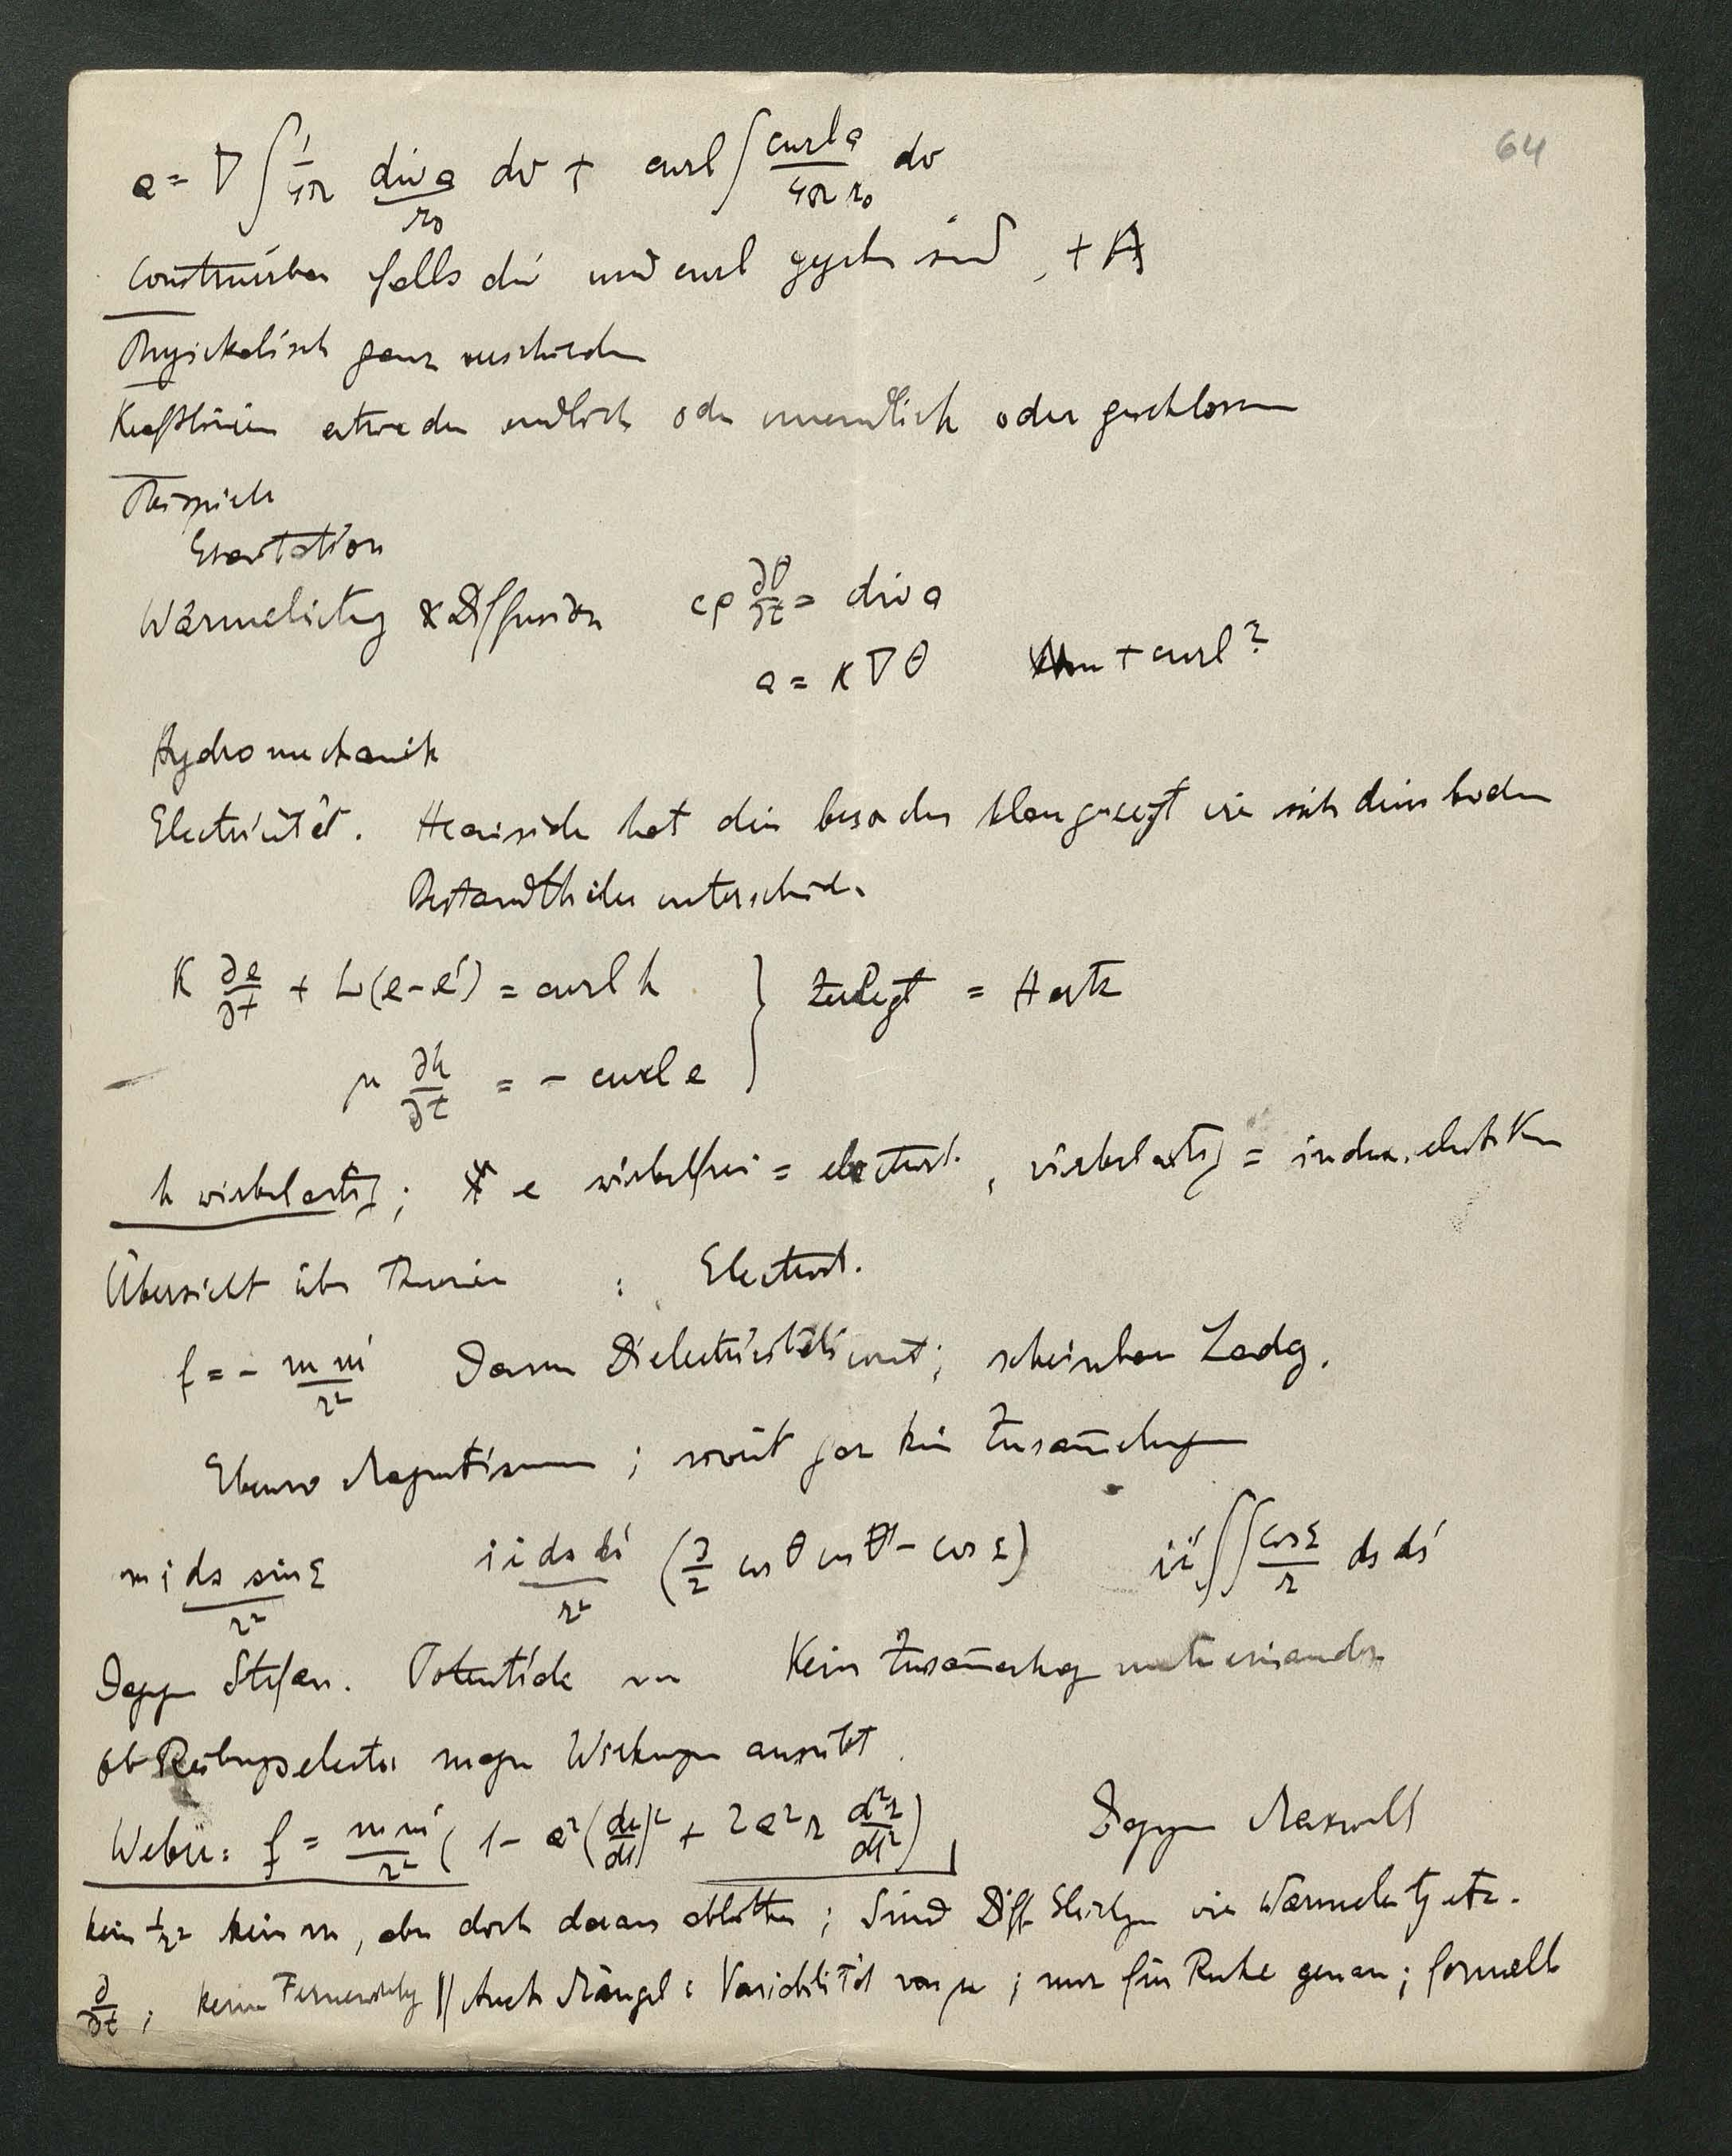 64
a = ∇ ∫ 1/4π div a / r₀ dv + curl ∫ curl a / 4π r₀ dv
Construirbar falls div und curl gegeben sind, + A
Physikalisch ganz verschieden
Kraftlinien entweder endlich oder unendlich oder geschlossen
Beispiele
Gravitation
Wärmeleitung & Diffusion cρ ∂θ/∂t = div a
a = κ ∇ θ + curl?
Hydromechanik
Electricität. Heaviside hat dies besonders klar gezeigt wie sich diese beiden
Bestandtheile unterscheiden
K ∂e/∂t + L(e-e') = curl h } zerlegt = Hertz
μ ∂h/∂t = - curl e
h wirbelartig; e wirbelfrei = electrost., wirbelartig = induc. elect. Kr
Übersicht über Theorien : Electrost.
f = - m m'/r² Dann Dielectricitätsconst; scheinbare Ladg.
Ebenso Magnetismus; soweit gar kein Zusam̄enhang
m i ds sin ε / r² i i ds ds' / r² (3/2 cos θ cos θ' - cos ε) i i' ∫∫ cos ε / r ds ds'
Dagegen Stefan. Potentiale Kein Zusam̄enhang miteinander
ob Reibungselectr magn Wirkungen ausübt.
Weber: f = m m'/r² (1 - a² (dr/dt)² + 2 a² r d²r/dt²) Dagegen Maxwell
kein 1/r² kein m, aber doch daraus ableitbar; Sind Diff Gleichgen wie Wärmeleitg etc.
∂/∂t; keine Fernwirkg || Auch Mängel: Variabilität von μ; nur für Ruhe genau; formell